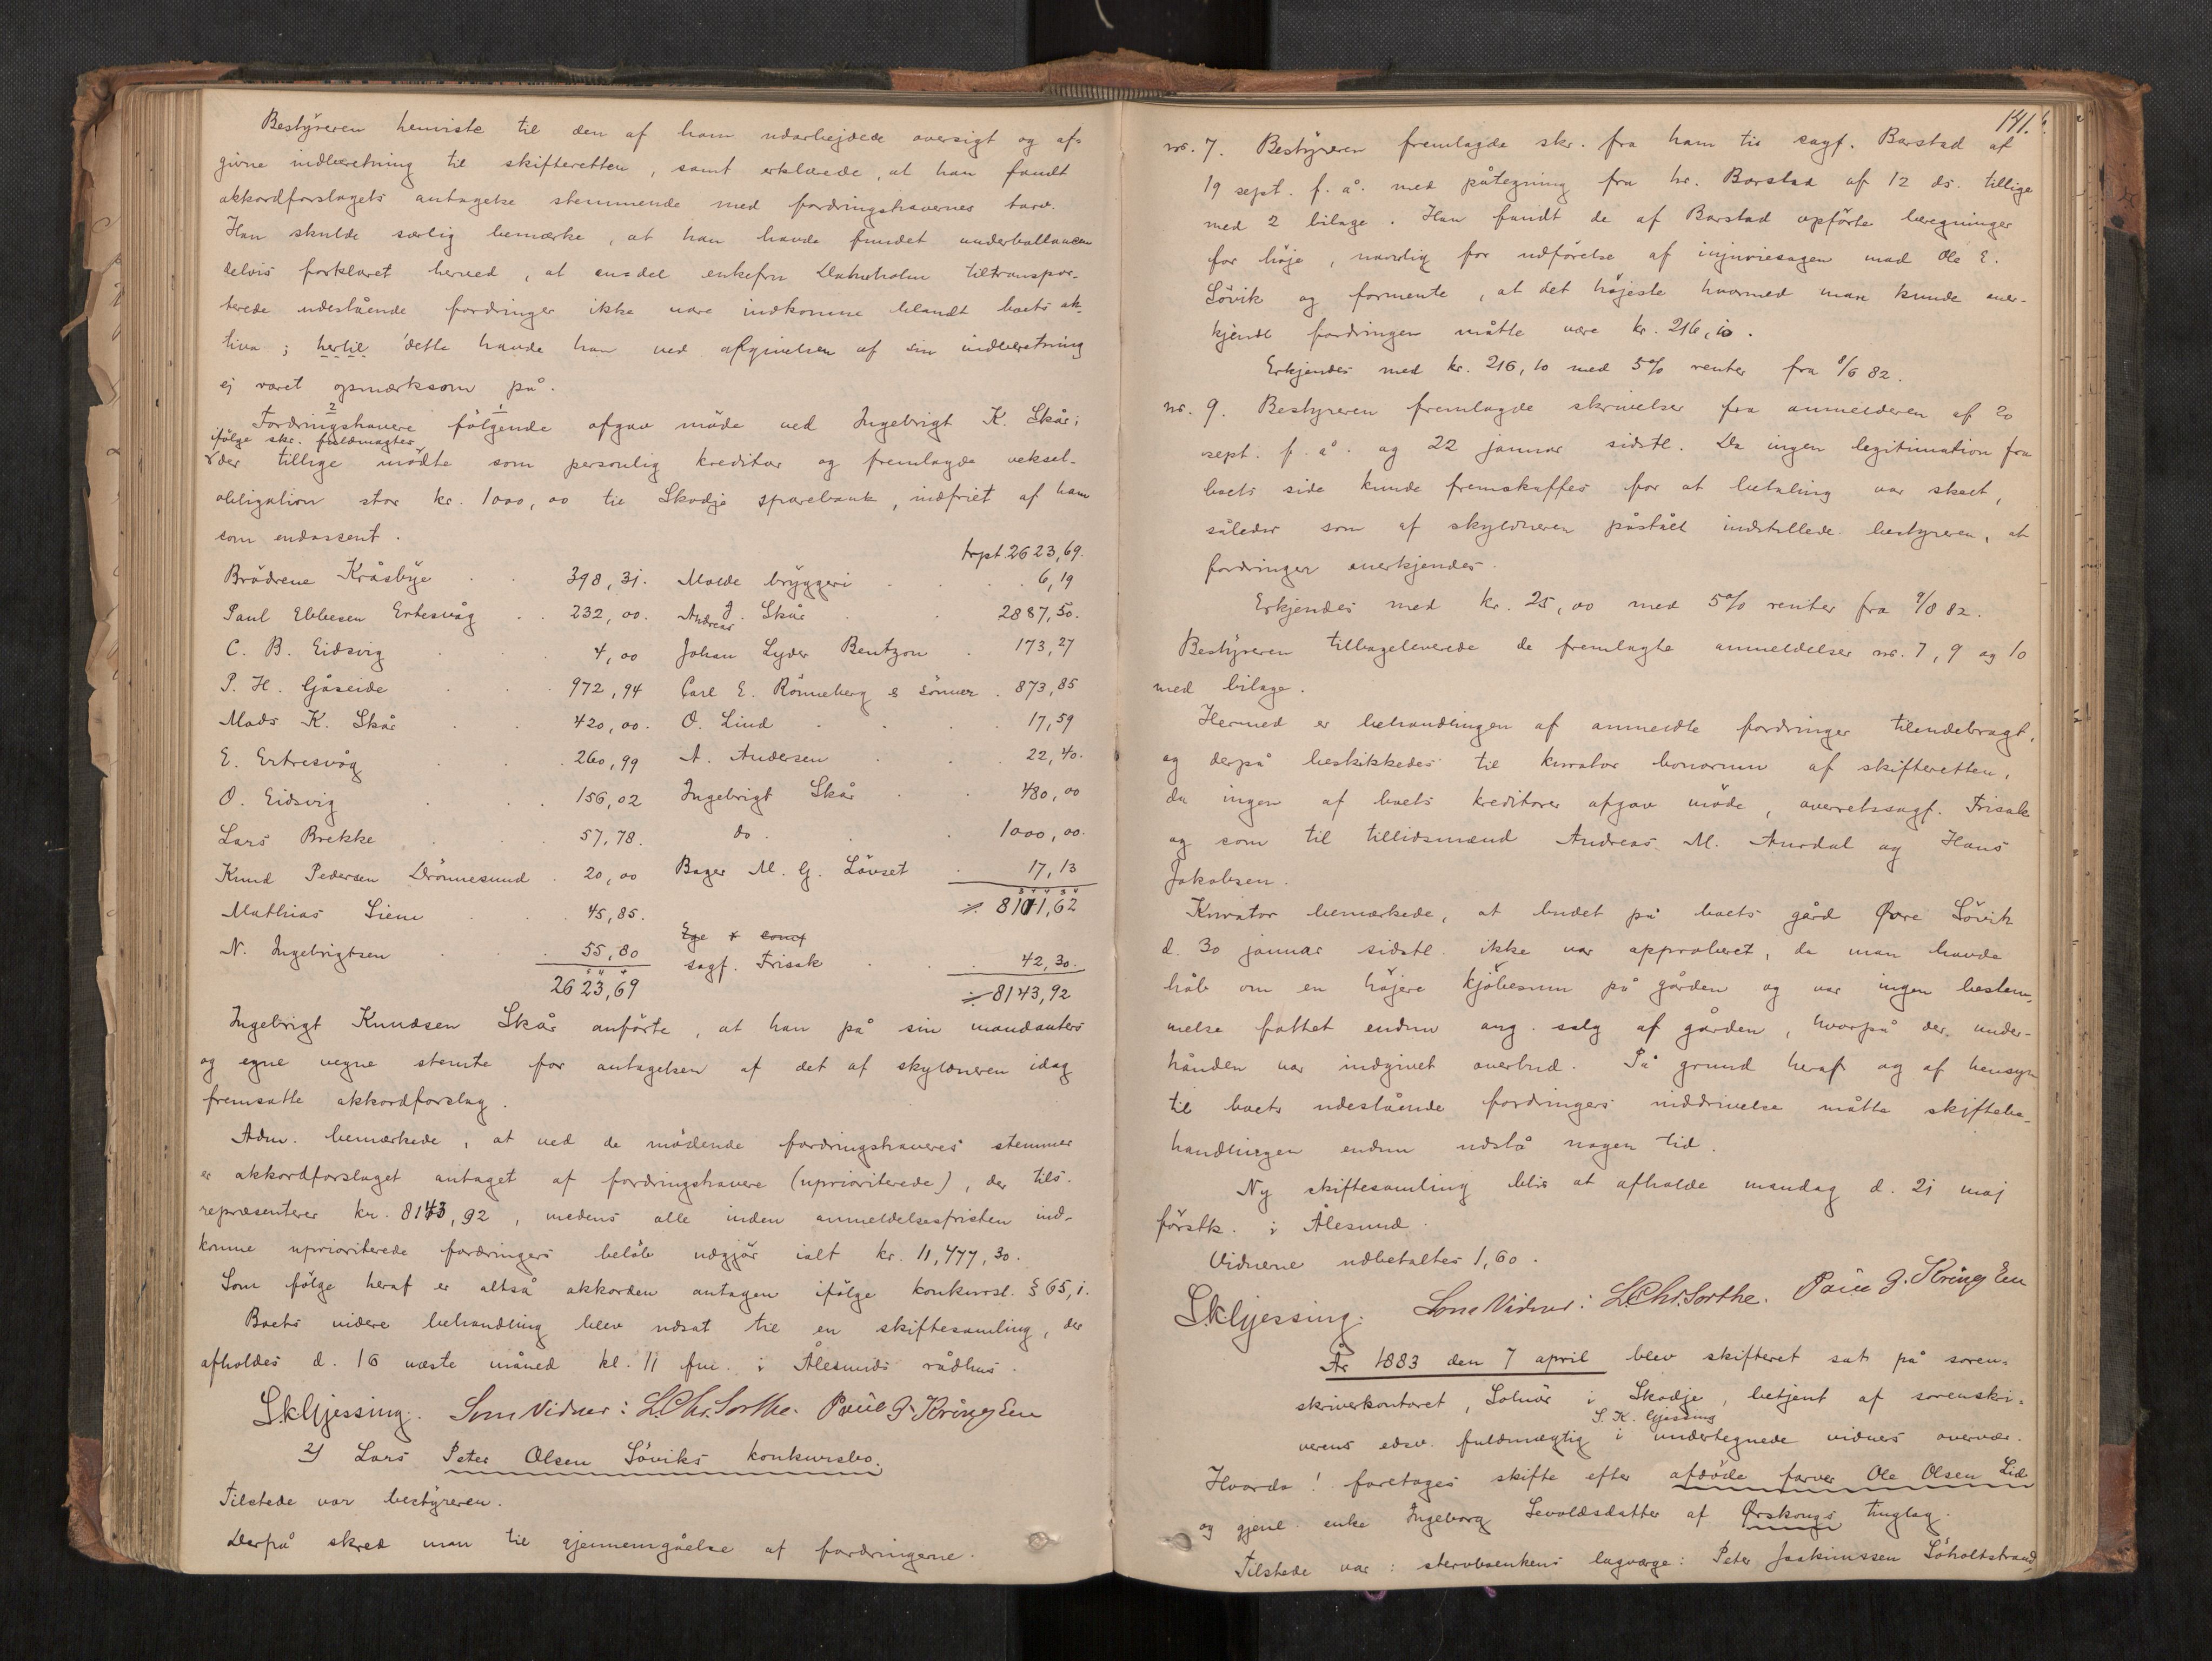 Bestyreren henviste til den af ham udarbejdede oversigt og af-
givne indberetning til skifteretten, samt erklærede, at han fandt
akkordforslagets antagelse stemmende med fordringshavernes tarv.
Han skulde særlig bemærke, at han havde fundet underballancen
delvis forklaret herved, at endel enkefru Daheholm tiltranspor-
terede udestående fordringer ikke vare indkomne blandt boets ak-
tiva; hertil dette havde han ved afgivelsen af sin indberetning
ej været opmærksom på.
2 1
Fordringshavere følgende afgav møde ved Ingebrigt K. Skår;
ifølge skr. fuldmagter
der tillige mødte som personlig kreditor og fremlagde veksel-
obligation stor kr. 1000,00 til Skodje sparebank, indfriet af ham
som endossent.
trpt 2623,69.
Brødrene Kråsbye 398,31. Molde bryggeri 6,19
Paul Ebbesen Ertesvåg 232,00. Andreas J. Skår 2887,50.
C. B. Eidsvig 4,00 Johan Lyder Bentzon 173,27
P. H. Gåseide 972,94 Carl E. Rønneberg & sønner 873,85
Mads K. Skår 420,00. O. Lind 17,59
E. Ertresvåg 260,99 A. Andersen 22,40.
O. Eidsvig 156,02 Ingebrigt Skår 480,00
Lars Brekke 57,78. do. 1000,00.
Knud Pedersen Drønnesund 20,00 Bager M. G. Løvset 17,13
Mathias Liem 45,85. 8101,62
N. Ingebrigtsen 55,80 sagf. Frisak 42,30.
2623,69 8143,92
Ingebrigt Knudsen Skår anførte, at han på sin mandanters
og egne vegne stemte for antagelsen af det af skyldneren idag
fremsatte akkordforslag.
Adm. bemærkede, at ved de mødende fordringshaveres stemmer
er akkordforslaget antaget af fordringshavere (uprioriterede), der tils.
repræsenterer kr. 8143,92, medens alle inden anmeldelsesfristen ind-
komne uprioriterede fordringers beløb udgjør ialt kr. 11,477,30.
Som følge heraf er altså akkorden antagen ifølge konkursl. § 65,1.
Boets videre behandling blev udsat til en skiftesamling, der
afholdes d. 16 næste måned kl. 11 fm. i Ålesunds rådhus.
S.K. Gjessing. Som Vidner: L. Chr. Sorthe. Paul G. Kringsten
2) Lars Peter Olsen Søviks konkursbo.
Tilstede var bestyreren.
Derpå skred man til gjennemgåelse af fordringerne.
141.
nr. 7. Bestyreren fremlagde skr. fra ham til sagf. Barstad af
19 sept. f. å. med påtegning fra hr. Barstad af 12 ds. tillige
med 2 bilage. Han fandt de af Barstad opførte beregninger
for høje, navnlig for udførelse af injuriesagen mod Ole E.
Søvik og formente, at det højeste hvormed man kunde aner-
kjende fordringen måtte være kr. 216,10.
Erkjendes med kr. 216,10 med 5% renter fra 8/6 82.
nr. 9. Bestyreren fremlagde skrivelser fra anmelderen af 20
sept. f. å. og 22 januar sidstl. Da ingen legitimation fra
boets side kunde fremskaffes for at betaling var skeet,
således som af skyldneren påstået indstillede bestyreren, at
fordringen anerkjendes.
Erkjendes med kr. 25,00 med 5% renter fra 9/8 82.
Bestyreren tilbageleverede de fremlagte anmeldelser nr. 7, 9 og 10
med bilage.
Hermed er behandlingen af anmeldte fordringer tilendebragt,
og derpå beskikkedes til kurator bonorum af skifteretten,
da ingen af boets kreditorer afgav møde, overretssagf. Frisak
og som til tillidsmænd Andreas M. Aurdal og Hans
Jakobsen.
Kurator bemærkede, at budet på boets gård Øvre Søvik
d. 30 januar sidstl. ikke var approberet, da man havde
håb om en højere kjøbesum på gården og var ingen bestem-
melse fattet endnu ang. salg af gården, hvorpå der under-
hånden var indgivet overbud. På grund heraf og af hensyn
til boets udestående fordringers inddrivelse måtte skiftebe-
handlingen endnu udstå nogen tid.
Ny skiftesamling blir at afholde mandag d. 21 maj
førstk. i Ålesund.
Vidnerne udbetaltes 1,60.
S.K. Gjessing. Som Vidner: L. Chr. Sorthe. Paul G. Kringsten
År 1883 den 7 april blev skifteret sat på soren-
skriverkontoret, Solnør i Skodje, betjent af sorenskri-
S. K. Gjessing
verens edsv. fuldmægtig i undertegnede vidners overvær.
Hvorda! foretoges skifte efter afdøde farver Ole Olsen Lid
og gjenl. enke Ingeborg Sevoldsdatter af Ørskougs tinglag.
Tilstede var: stervboenkens lagværge: Peter Joakimssen Søholtstrand,